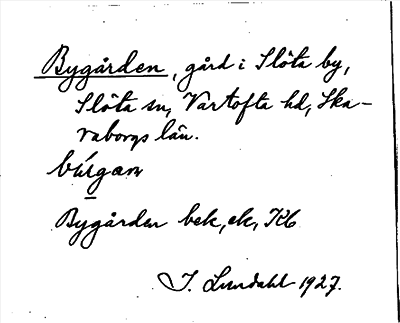 Bygården, gård i Slöta by,
Slöta sn, Vartofta hd, Ska-
raborgs län.
búrgam
Bygården bek, ek, Kb
I. Lundahl 1927.